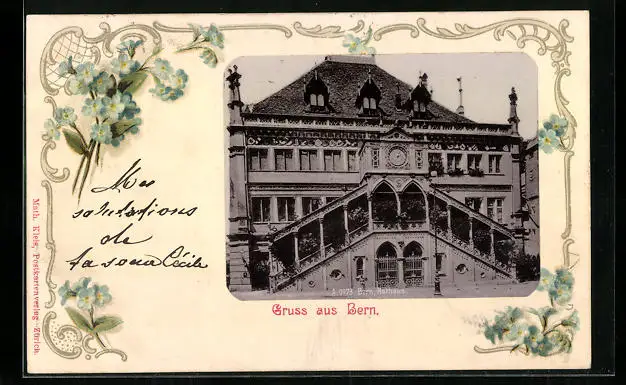 Mes
salutations
de
ta soeur Cécile
Math. Kleis, Postkartenverlag - Zürich.
A 9173 Bern, Rathaus.
Gruss aus Bern.